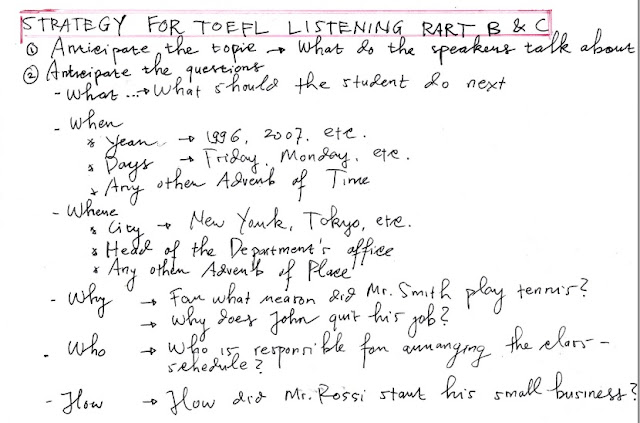 STRATEGY FOR TOEFL LISTENING PART B & C
① Anticipate the topic → What do the speakers talk about
② Anticipate the questions
- What ...→ What should the student do next
- When
* Year → 1996, 2007, etc.
* Days → Friday, Monday, etc.
* Any other Adverb of Time
- Where
* City → New York, Tokyo, etc.
* Head of the Department's office
* Any other Adverb of Place
- Why → For what reason did Mr. Smith play tennis?
→ Why does John quit his job?
- Who → Who is responsible for arranging the class-
schedule?
- How → How did Mr. Rossi start his small business?